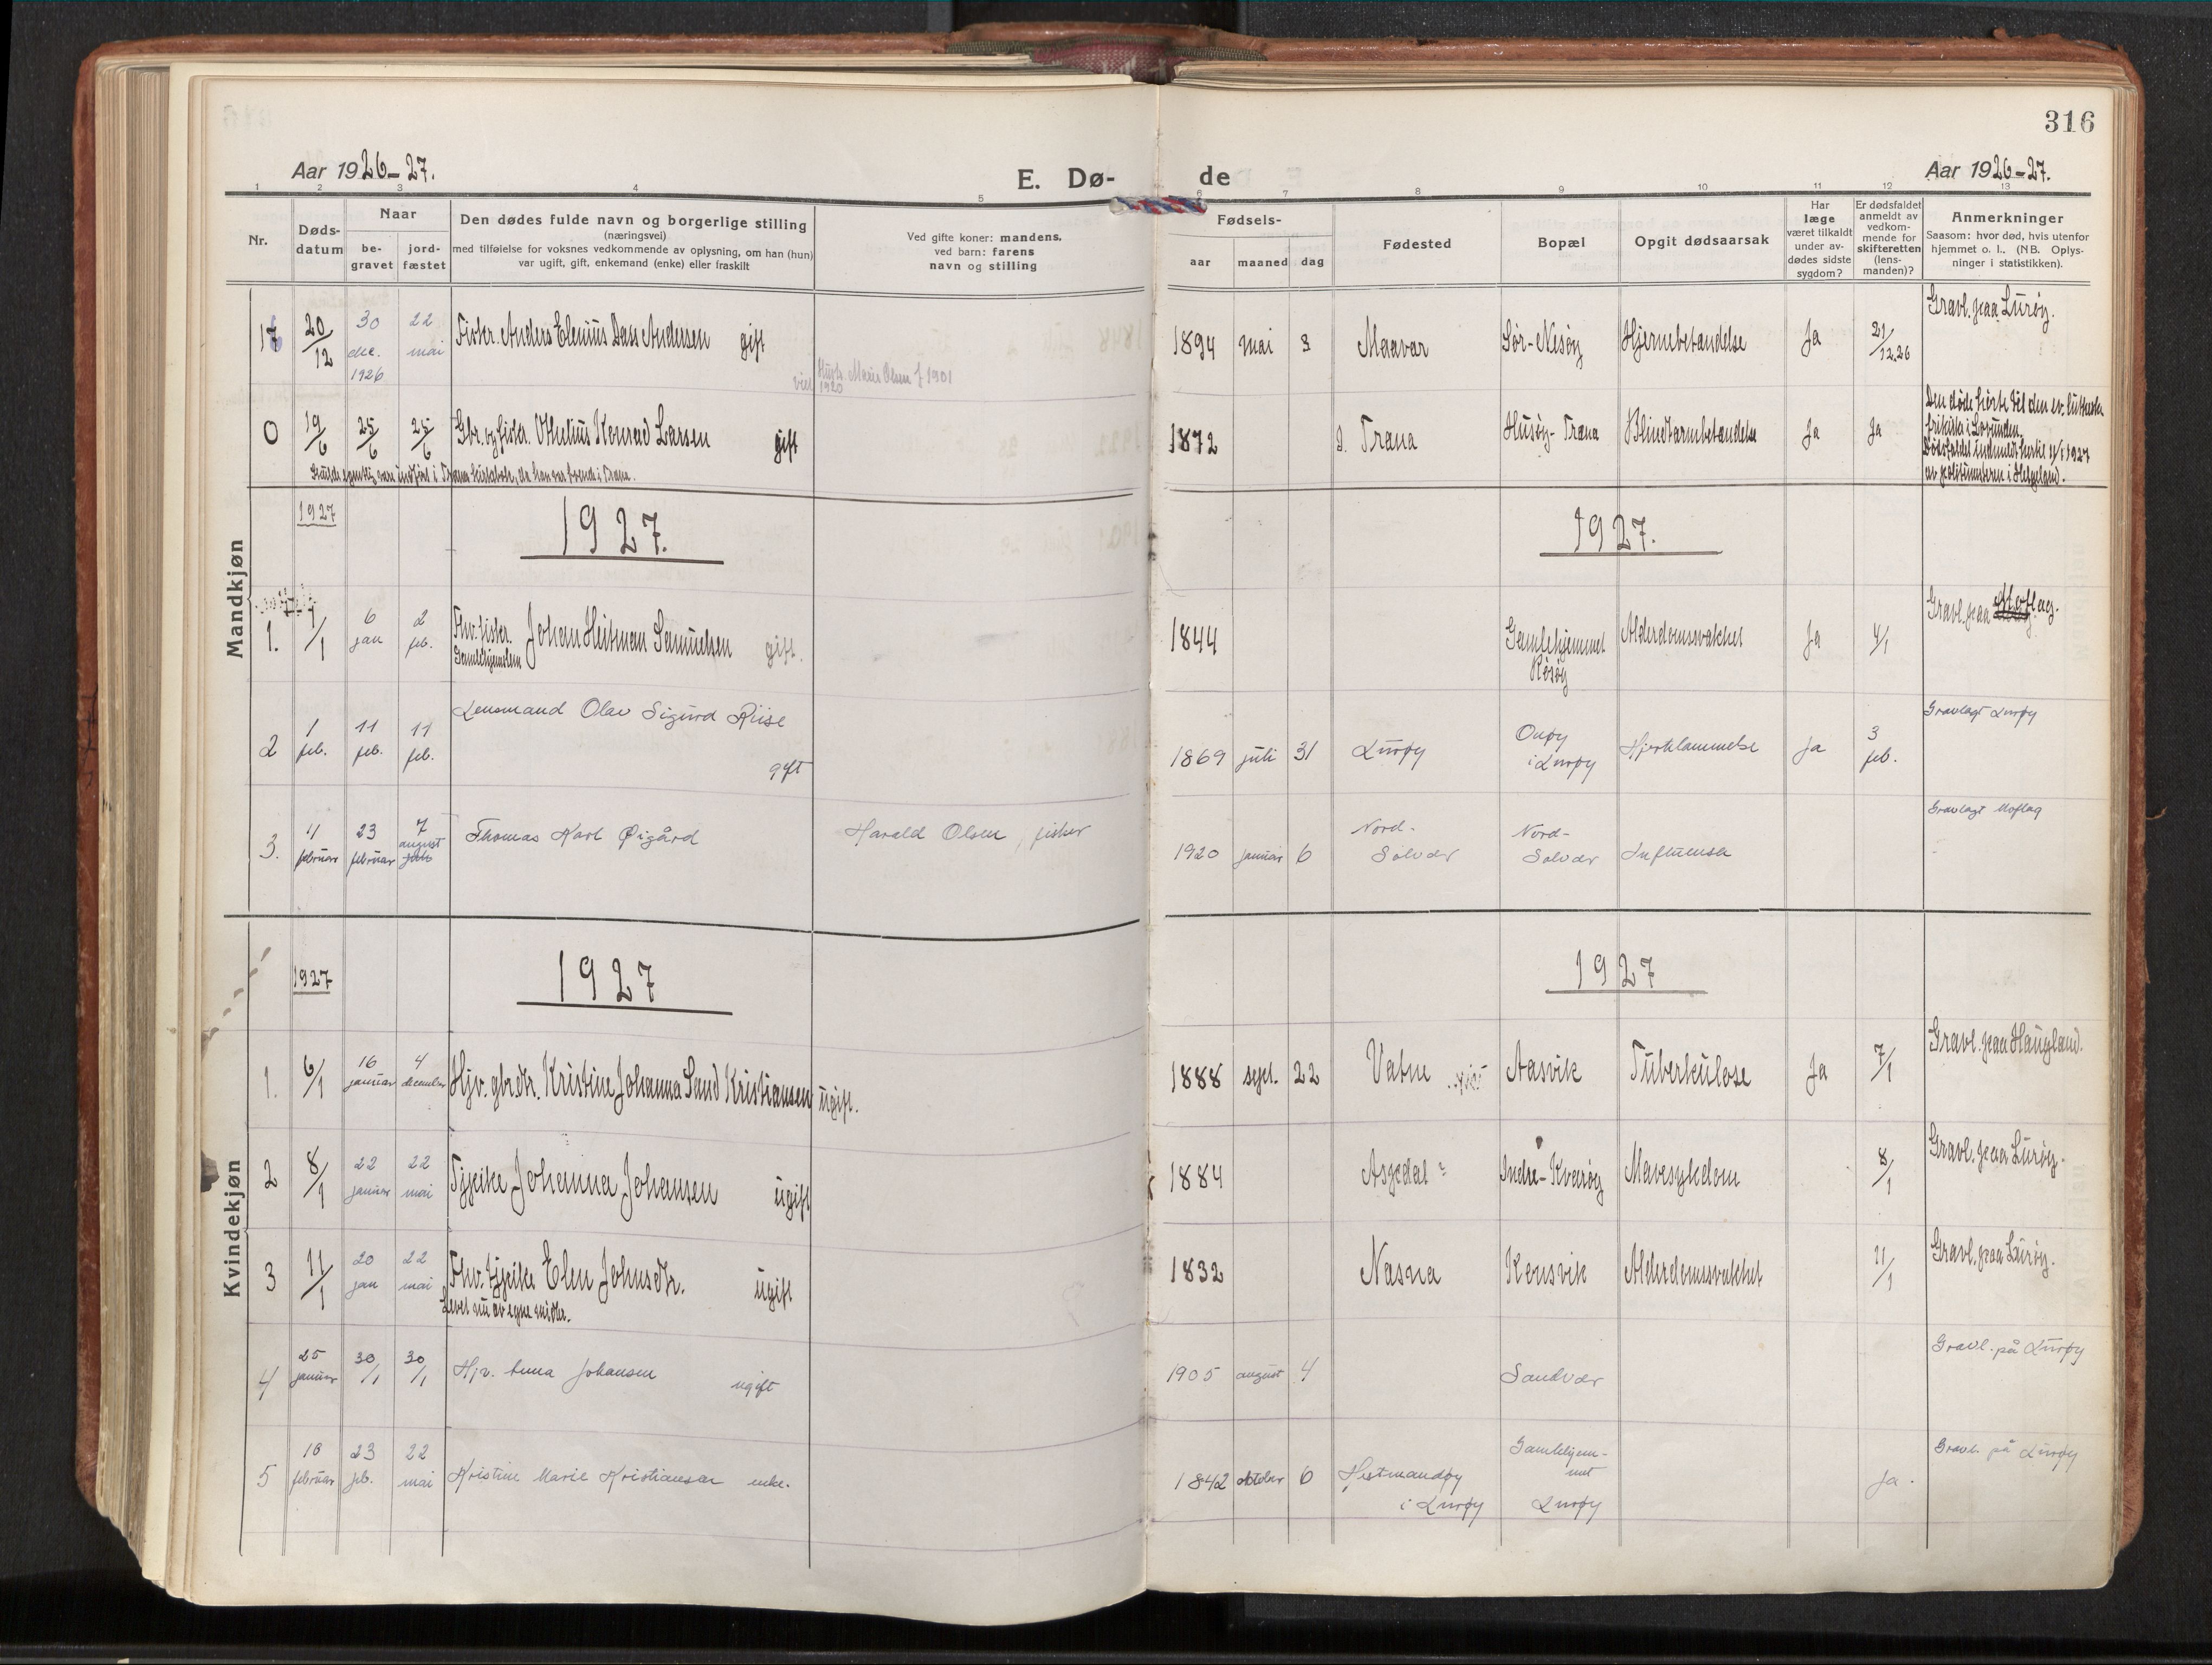 316
Aar 1926-27.
E. Dø-
de
Aar 1926-27.
1 2 3 4 5 6 7 8 9 10 11 12 13
Nr.
Døds-
datum
Naar
be-
gravet
jord-
fæstet
Den dødes fulde navn og borgerlige stilling
(næringsvei)
med tilføielse for voksnes vedkommende av oplysning, om han (hun)
var ugift, gift, enkemand (enke) eller fraskilt
Ved gifte koner: mandens.
ved barn: farens
navn og stilling
Fødsels-
aar maaned dag
Fødested
Bopæl
Opgit dødsaarsak
Har
læge
været tilkaldt
under av-
dødes sidste
sygdom?
Er dødsfaldet
anmeldt av
vedkom-
mende for
skifteretten
(lens-
manden)?
Anmerkninger
Saasom: hvor død, hvis utenfor
hjemmet o. l.. (NB. Oplys-
ninger i statistikken).
Mandkjøn
20/12 30 dec. 1926 22 mai Fisker. Anders Elenius Dass Andersen gift
Marius Olsen f 1901
1920
1894 mai 3 Maavar Sør-Nesøy Hjernebetændelse Ja 21/12.26 Gravl. paa Lurøy.
0 19/6 25/6 25/6 Gbr. og fisker. Othelius Konrad Larsen gift
1872 Træna Husøy-Træna Blindtarmbetændelse Ja Ja
Den døde hørte til den ev. lutherske
frikirke i Lovunden.
av politimesteren i Helgeland.
1927
1927.
1927.
1. 1/1 6 jan 2 feb. Fhv. fisker. Johan Heitman Samuelsen gift.
1844 Gamlehjemmet Alderdomssvakhet Ja 4/1 Gravl. paa Moflag.
2 1 feb. 11 feb. 11 feb. Lensmand Olav Sigurd Riise
gift
1869 juli 31 Lurøy Onøy i Lurøy Hjertelammelse Ja 3 feb. Gravlagt Lurøy
3. 4 februar 23 februar 7 august Thomas Karl Øigård Harald Olsen, fisker
1920 januar 6 Nord-Solvær Nord-Solvær Influensa Gravlagt Moflag
Kvindekjøn
1927
1927
1927
1. 6/1 16 januar 4 december Hjv. gbr.dtr. Kristine Johanna Sand Kristiansen ugift.
1888 sept. 22 Vatne Aasvik Tuberkulose Ja 7/1 Gravl. paa Haugland.
2 8/1 22 januar 22 mai Tjpike Johanna Johansen ugift
1884 Aspdal Indre-Kvarøy Mavesykdom 8/1 Gravl. paa Lurøy.
3 11/1 20 jan 22 mai Fhv. tjpike Elen Johnsdtr. ugift
Levet nu av egne midler.
1832 Nesna Konsvik Alderdomssvakhet 11/1 Gravl. paa Lurøy.
4 25 januar 30/1 30/1 Hjv. Anna Johansen ugift
1905 august 4 Sandvær Gravl. på Lurøy
5 16 februar 23 feb. 22 mai Kristine Marie Kristiansen enke.
1842 oktober 6 Hestmandøy i Lurøy Gamlehjemmet Lurøy Ja. Gravl. på Lurøy